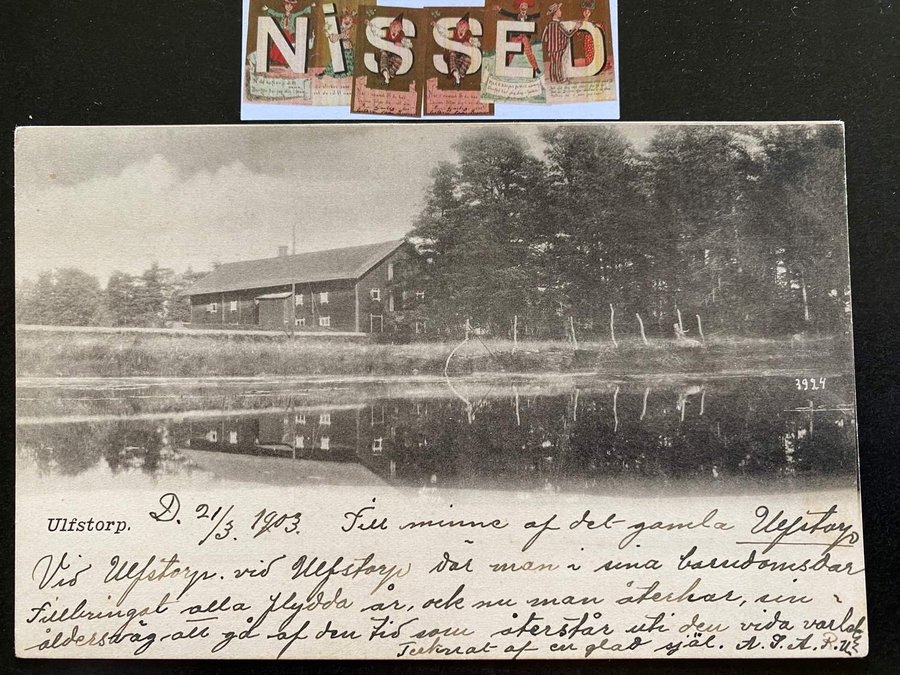 NISSED
3924
Ulfstorp. D. 21/3. 1903. Till minne af det gamla Ulfstorp
Vid Ulfstorp. vid Ulfstorp där man i sina barndomsdar
Tillbringat alla flydda år, och nu man återhar, sin
åldersväg att gå af den tid som återstår uti den vida
Tecknat af en glad själ. A. I. A. R.